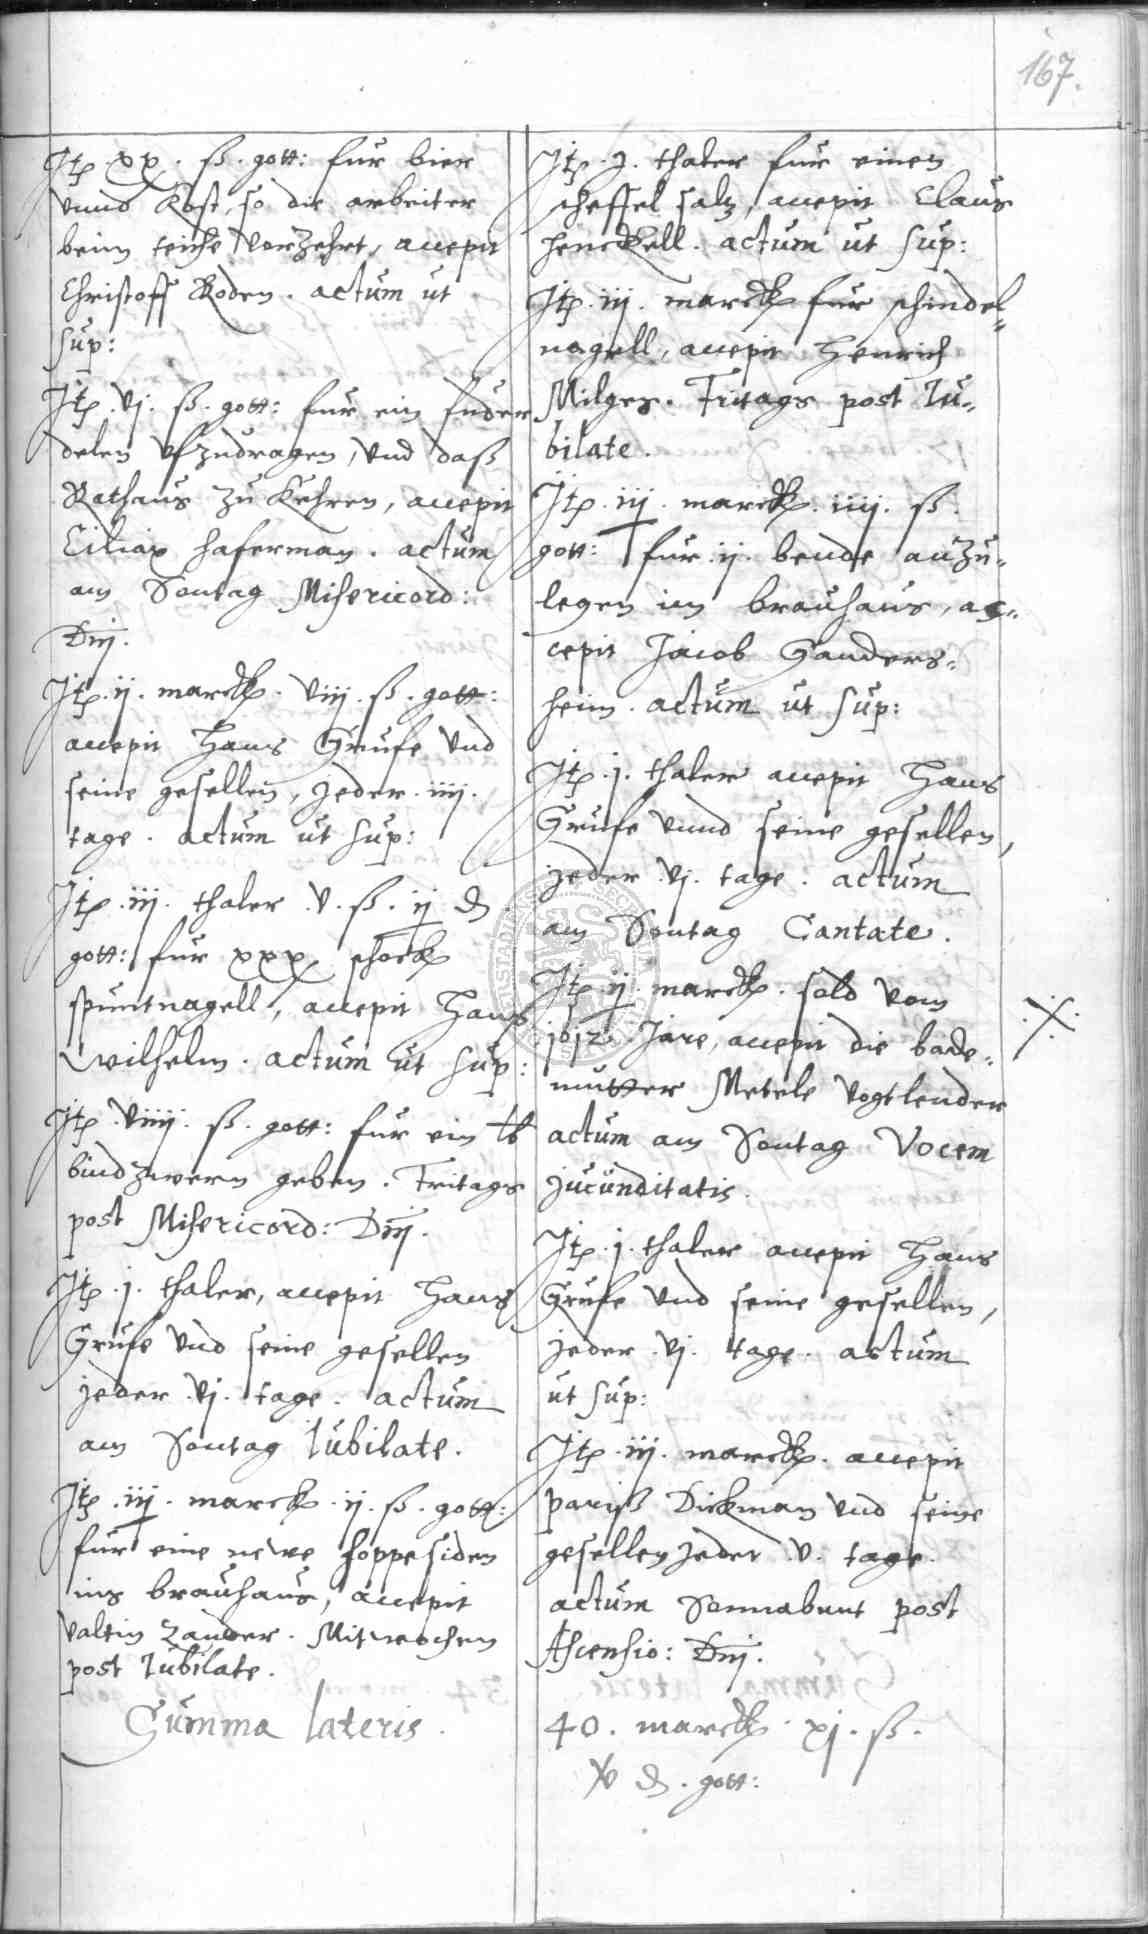 167.
Itp. xx. ß. gott: fur bier
vnnd Kost, so die arbeiter
beim teiche vorzehrt, accepit
Christoff Roden. actum ut
sup:
Itp. vj. ß. gott: fur ein fuder
delen vfzudragen, vnd daß
Rathaus zu Kehren, accepit
Ciliax Haferman. actum
am Sontag Misericord:
Dnj.
Itp. ij. marck. viij. ß. gott:
accepit Hans Grufe vnd
seine gesellen, jeder. iiij.
tage. actum ut sup:
Itp. iij. thaler. v. ß. ij ₰
gott: fur xxx schock
spuntnagell, accepit Hans
Wilhelm. actum ut sup:
Itp. viiij. ß. gott: fur ein ℔
bindzwern geben. Fritags
post Misericord: Dnj.
Itp. j. thaler, accepit Hans
Grufe vnd seine gesellen
jeder. vj. tage. actum
am Sontag Iubilate.
Itp. iij. marck. ij. ß. gott:
fur eine newe hoppesiden
ins brauhaus, accepit
Valtin Zander. Mitwochen
post Iubilate.
Summa lateris.
Itp. j. thaler fur einen
scheffel saltz, accepit Claus
Henckell. actum ut sup:
Itp. iij. marck fur schindel-
nagell, accepit Henrich
Milges. Fritags post Iu-
bilate.
Itp. iij. marck. iiij. ß.
gott: fur. ij. bende anzu-
legen im brauhaus, ac-
cepit Jacob Ganders-
heim. actum ut sup:
Itp. j. thaler accepit Hans
Grufe vnnd seine gesellen,
jeder. vj. tage. actum
am Sontag Cantate.
Itp. ij. marck. sold vom
1612 Jare, accepit die bade-
mutter Metele Vogtlender
actum am Sontag Vocem
jucunditatis.
Itp. j. thaler accepit Hans
Grufe vnd seine gesellen,
jeder. vj. tage. actum
ut sup:
Itp. iij. marck. accepit
pariß Dickman vnd seine
gesellen jeder. v. tage.
actum Sonnabent post
Ascensio: Dnj.
40. marck. xj. ß.
v ₰. gott: